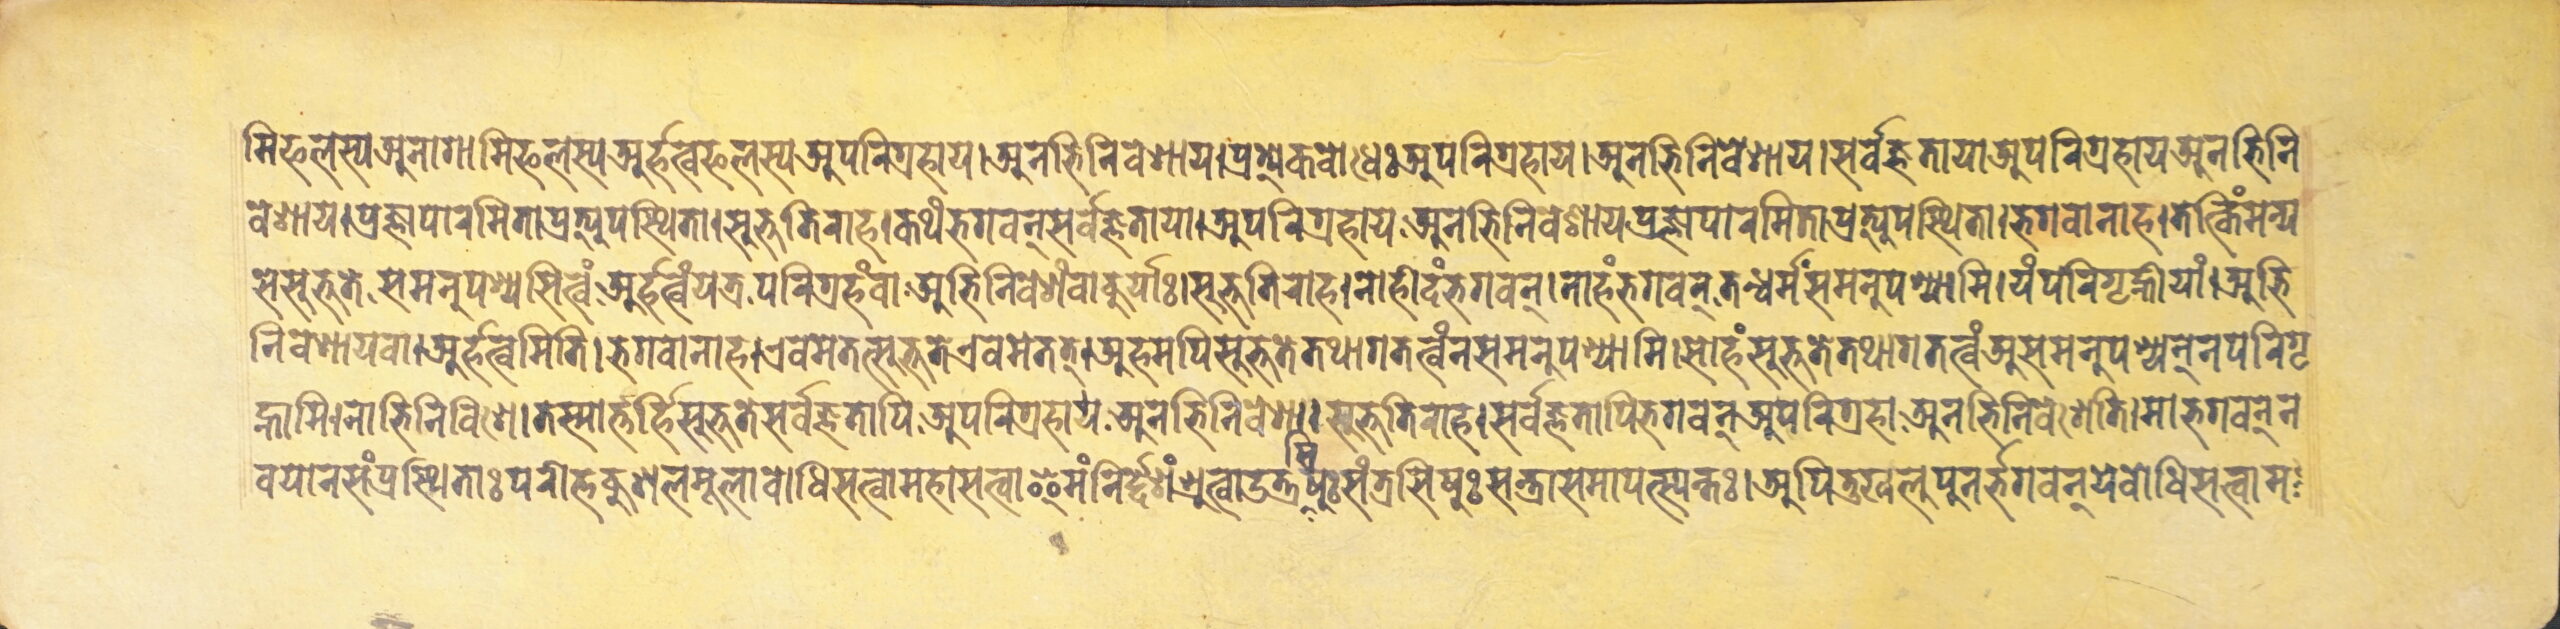 मिफलस्यअनागामिफलस्यअर्हत्वफलस्यअपरिग्रहाय।अनभिनिवेशाय।प्रत्येकबोधेःअपरिग्रहाय।अनभिनिवेशाय।सर्वज्ञतायाअपरिग्रहायअनभिनि
वेशाय।प्रज्ञापारमिताप्रत्युपस्थिता।सुभूतिराह।कथंभगवन्सर्वज्ञताया।अपरिग्रहाय अनभिनिवेशायप्रज्ञापारमिताप्रत्युपस्थिता।भगवानाह।तत्किंमन्य
सेसुभूते समनुपश्यसित्वं अर्हत्वंयत्र परिग्रहंवा अभिनिवेशंवाकुर्याः।सुभूतिराह।नोहीदंभगवन्।नाहंभगवन् तन्धर्मंसमनुपश्यामि।यंपरिगृह्णीयां।अभि
निवेशायवा।अर्हत्वमिति।भगवानाह।एवमेतत्सुभूतेएवमेतत्।अहमपिसुभूतेतथागतत्वंनसमनुपश्यामि।सोहंसुभूतेतथागतत्वंअसमनुपश्यन्नपरिगृ
ह्णामि।नाभिनिविशे।तस्मात्तर्हिसुभूतेसर्वज्ञतापि अपरिग्रहाय अनभिनिवेशा।सुभूतिराह।सर्वज्ञतापिभगवन्अपरिग्रहा अनभिनिवेशेति।माभगवन्न
वयानसंप्रस्थिताःपरीत्तकुशलमूलाबोधिसत्वामहासत्वाइमंनिर्द्देशंश्रुत्वाउत्त्रसिषुःसंत्रसिषुःसन्त्रासमापत्स्यन्तः।अपितुखलुपुनर्भगवन्येबोधिसत्वाम